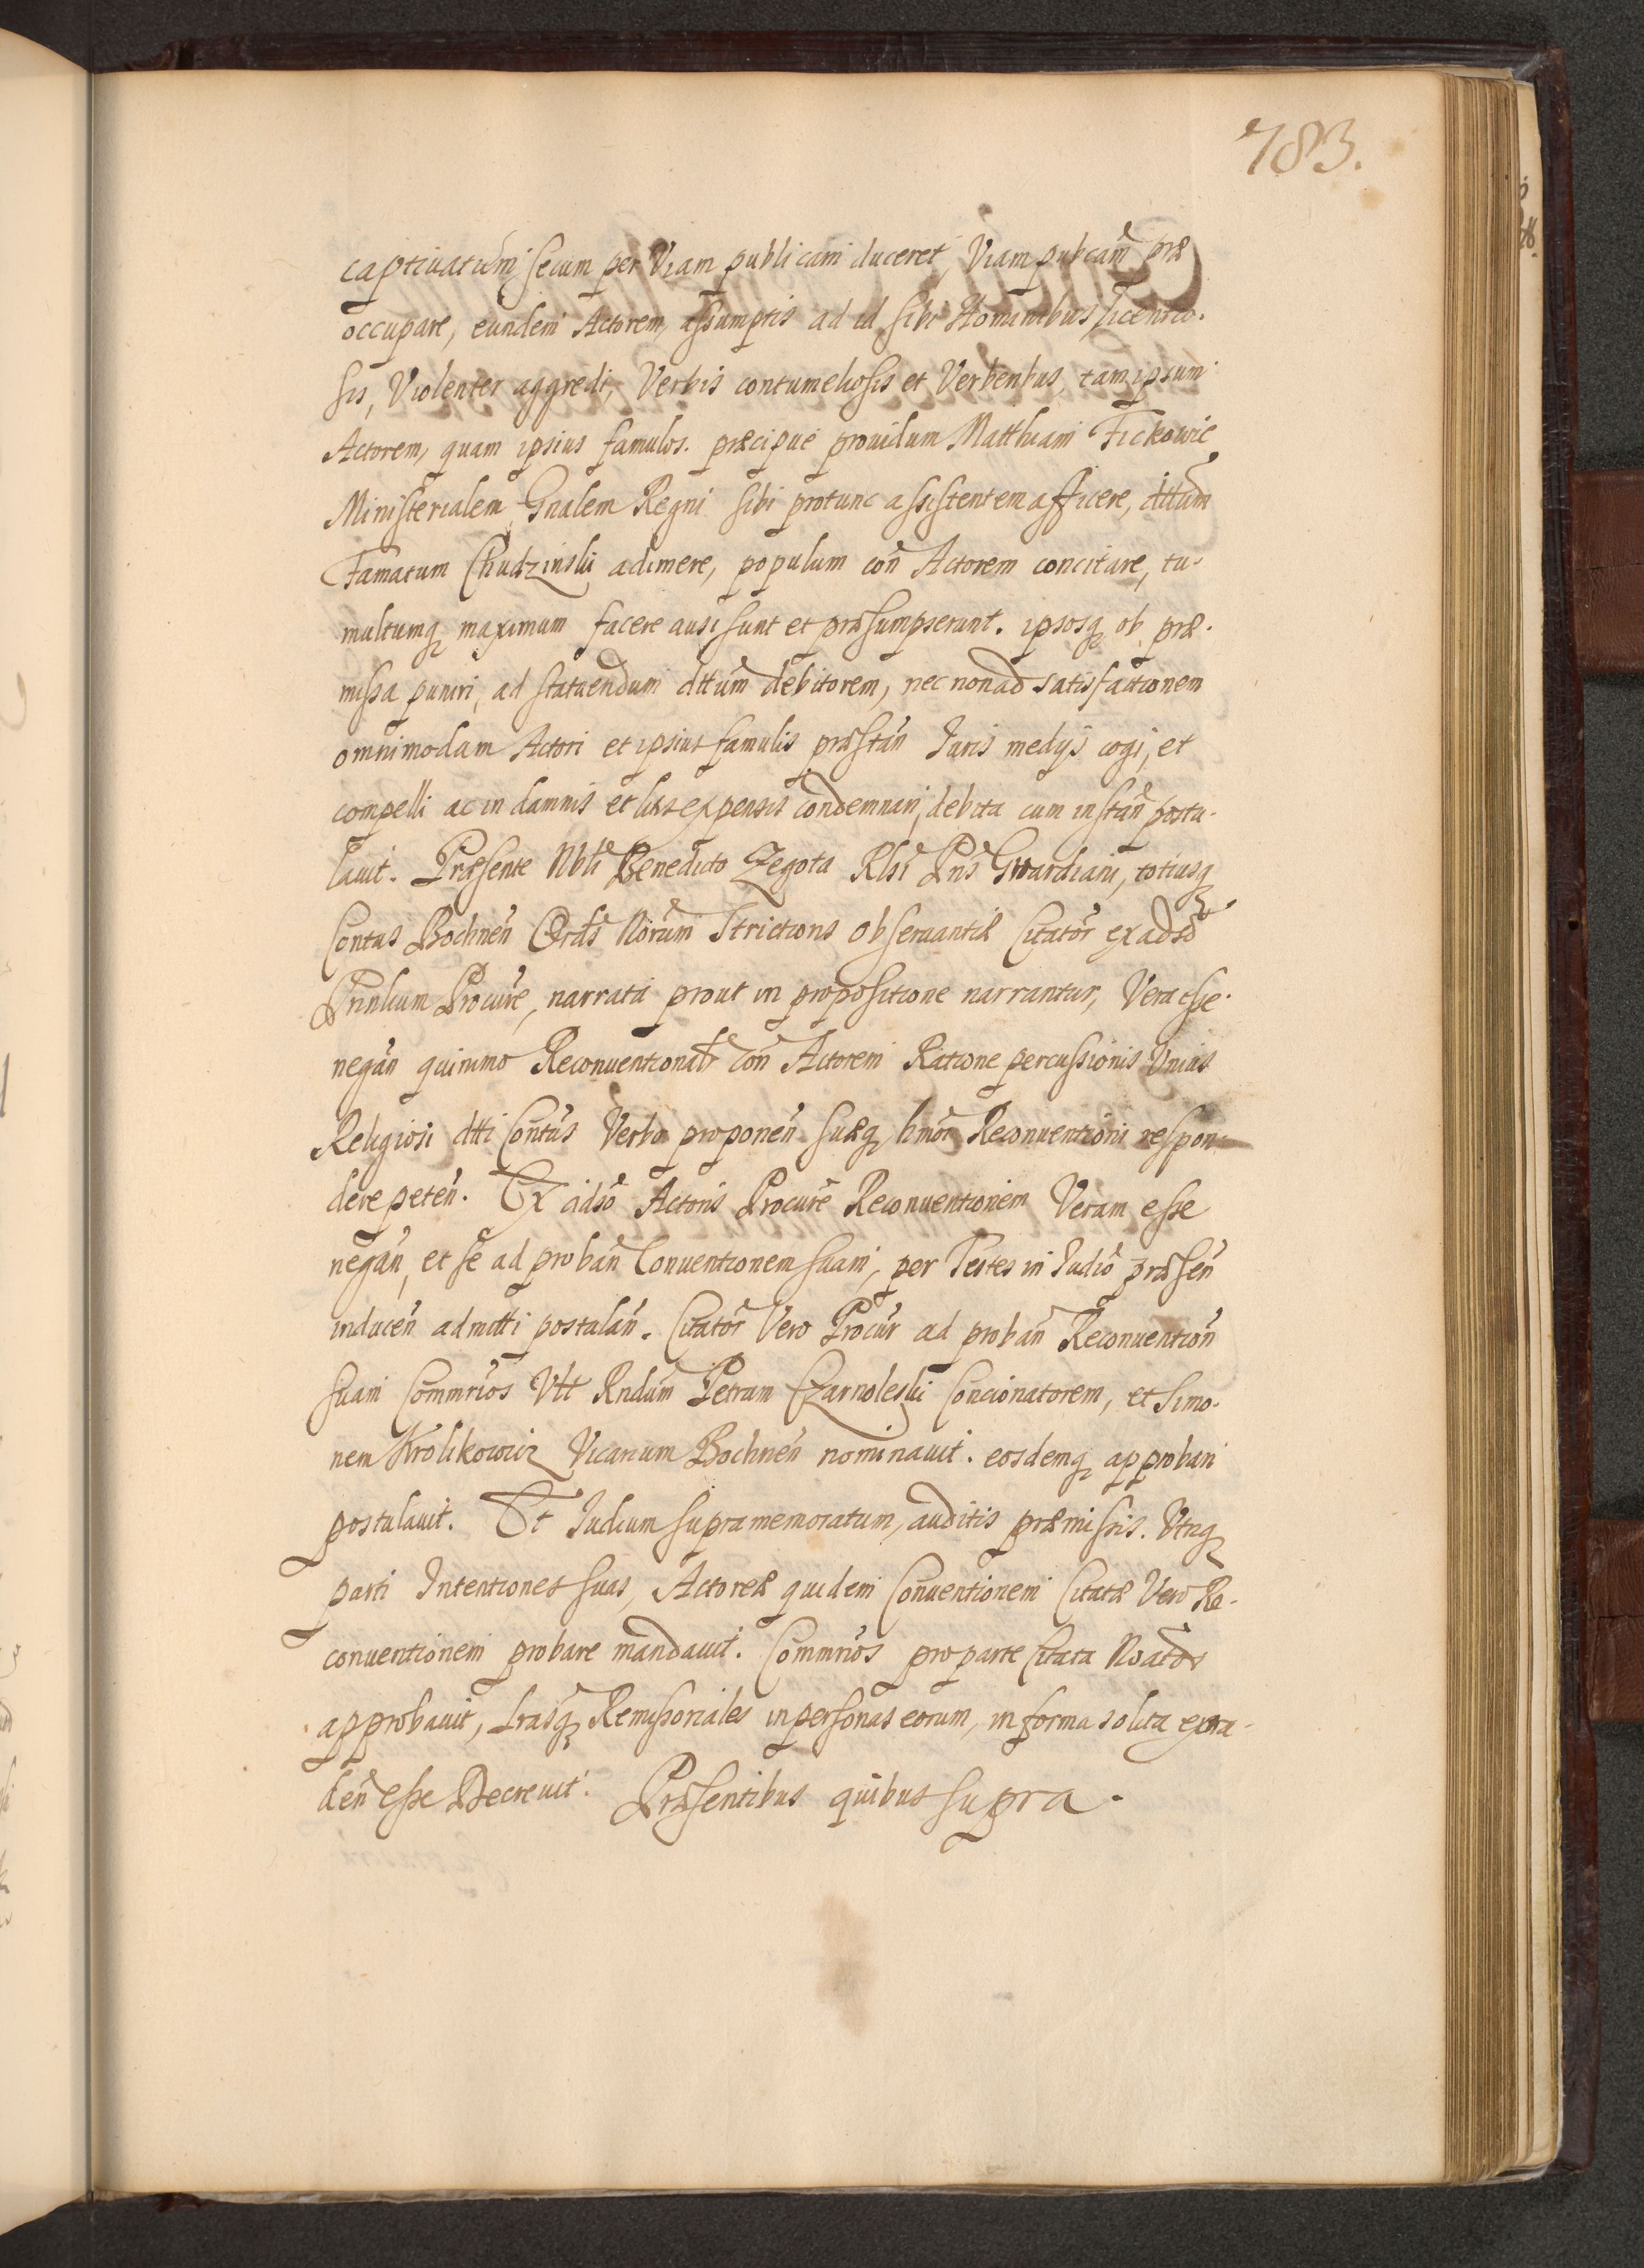 783.
captiuatum secum per Viam publicam duceret, Viam pubcam̃ præ
occupare, eundem Actorem, assumptis ad id sibi Hominibus licentio-
sis, Violenter aggredi, Verbis contumeliosis et Verberibus, tam ipsum
Actorem, quam ipsius famulos. præcipue prouidum Matthiam Fickowic
Ministerialem Gnalem Regni sibi protunc assistentem afficere, dttam̃
Famatum Chudzinski adimere, populum coñ Actorem concitare, tu-
multumq maximum facere ausi sunt et præsumpserunt. ipsosq ob præ-
missa puniri, ad statuendum dttum̃ debitorem, nec non ad satisfactionem
omnimodam Actori et ipsius famulis præstañ Iuris medijs cogi, et
compelli ac in damnis et litis expensis condemnari, debita cum instañ postu-
lauit. Præsente Nbli Benedicto Zegota Rlsi Pris Gwardiani, totiusq
Contus Bochneñ Ordis Norum Strictions Obseruantiæ Citator̃ ex adso
Prinlium Procure, narrata prout in propositione narrantur, Vera esse
negañ quinimo Reconuentionalr coñ Actorem Ratione percussionis Vnius
Religiosi dtti Contus Verbo proponeñ suæq hmoi Reconuentioni respon-
dere peteñ. Ex adso Actoris Procure Reconuentionem Veram esse
negañ, et se ad probañ Conuentionem suam, per Testes in Iudio præseñ
induceñ admitti postulañ. Citator̃ Vero Procur̃ ad probañ Reconuentioñ
suam Commrios Vlt Rndum Petrum Czarnoleski Concionatorem, et Simo-
nem Krolikowicz Vicarium Bochneñ nominauit. eosdemq approbari
postulauit. Et Iudium supramemoratum, auditis præmissis. Vtriq
parti Intentiones suas, Actoreæ quidem Conuentionem Citatæ Vero Re-
conuentionem probare mandauit. Commrios pro parte Citata Noatos
approbauit, Lrasq Remissoriales in personas eorum, in forma solita extra-
deñ esse Decreuit. Præsentibus quibus supra.